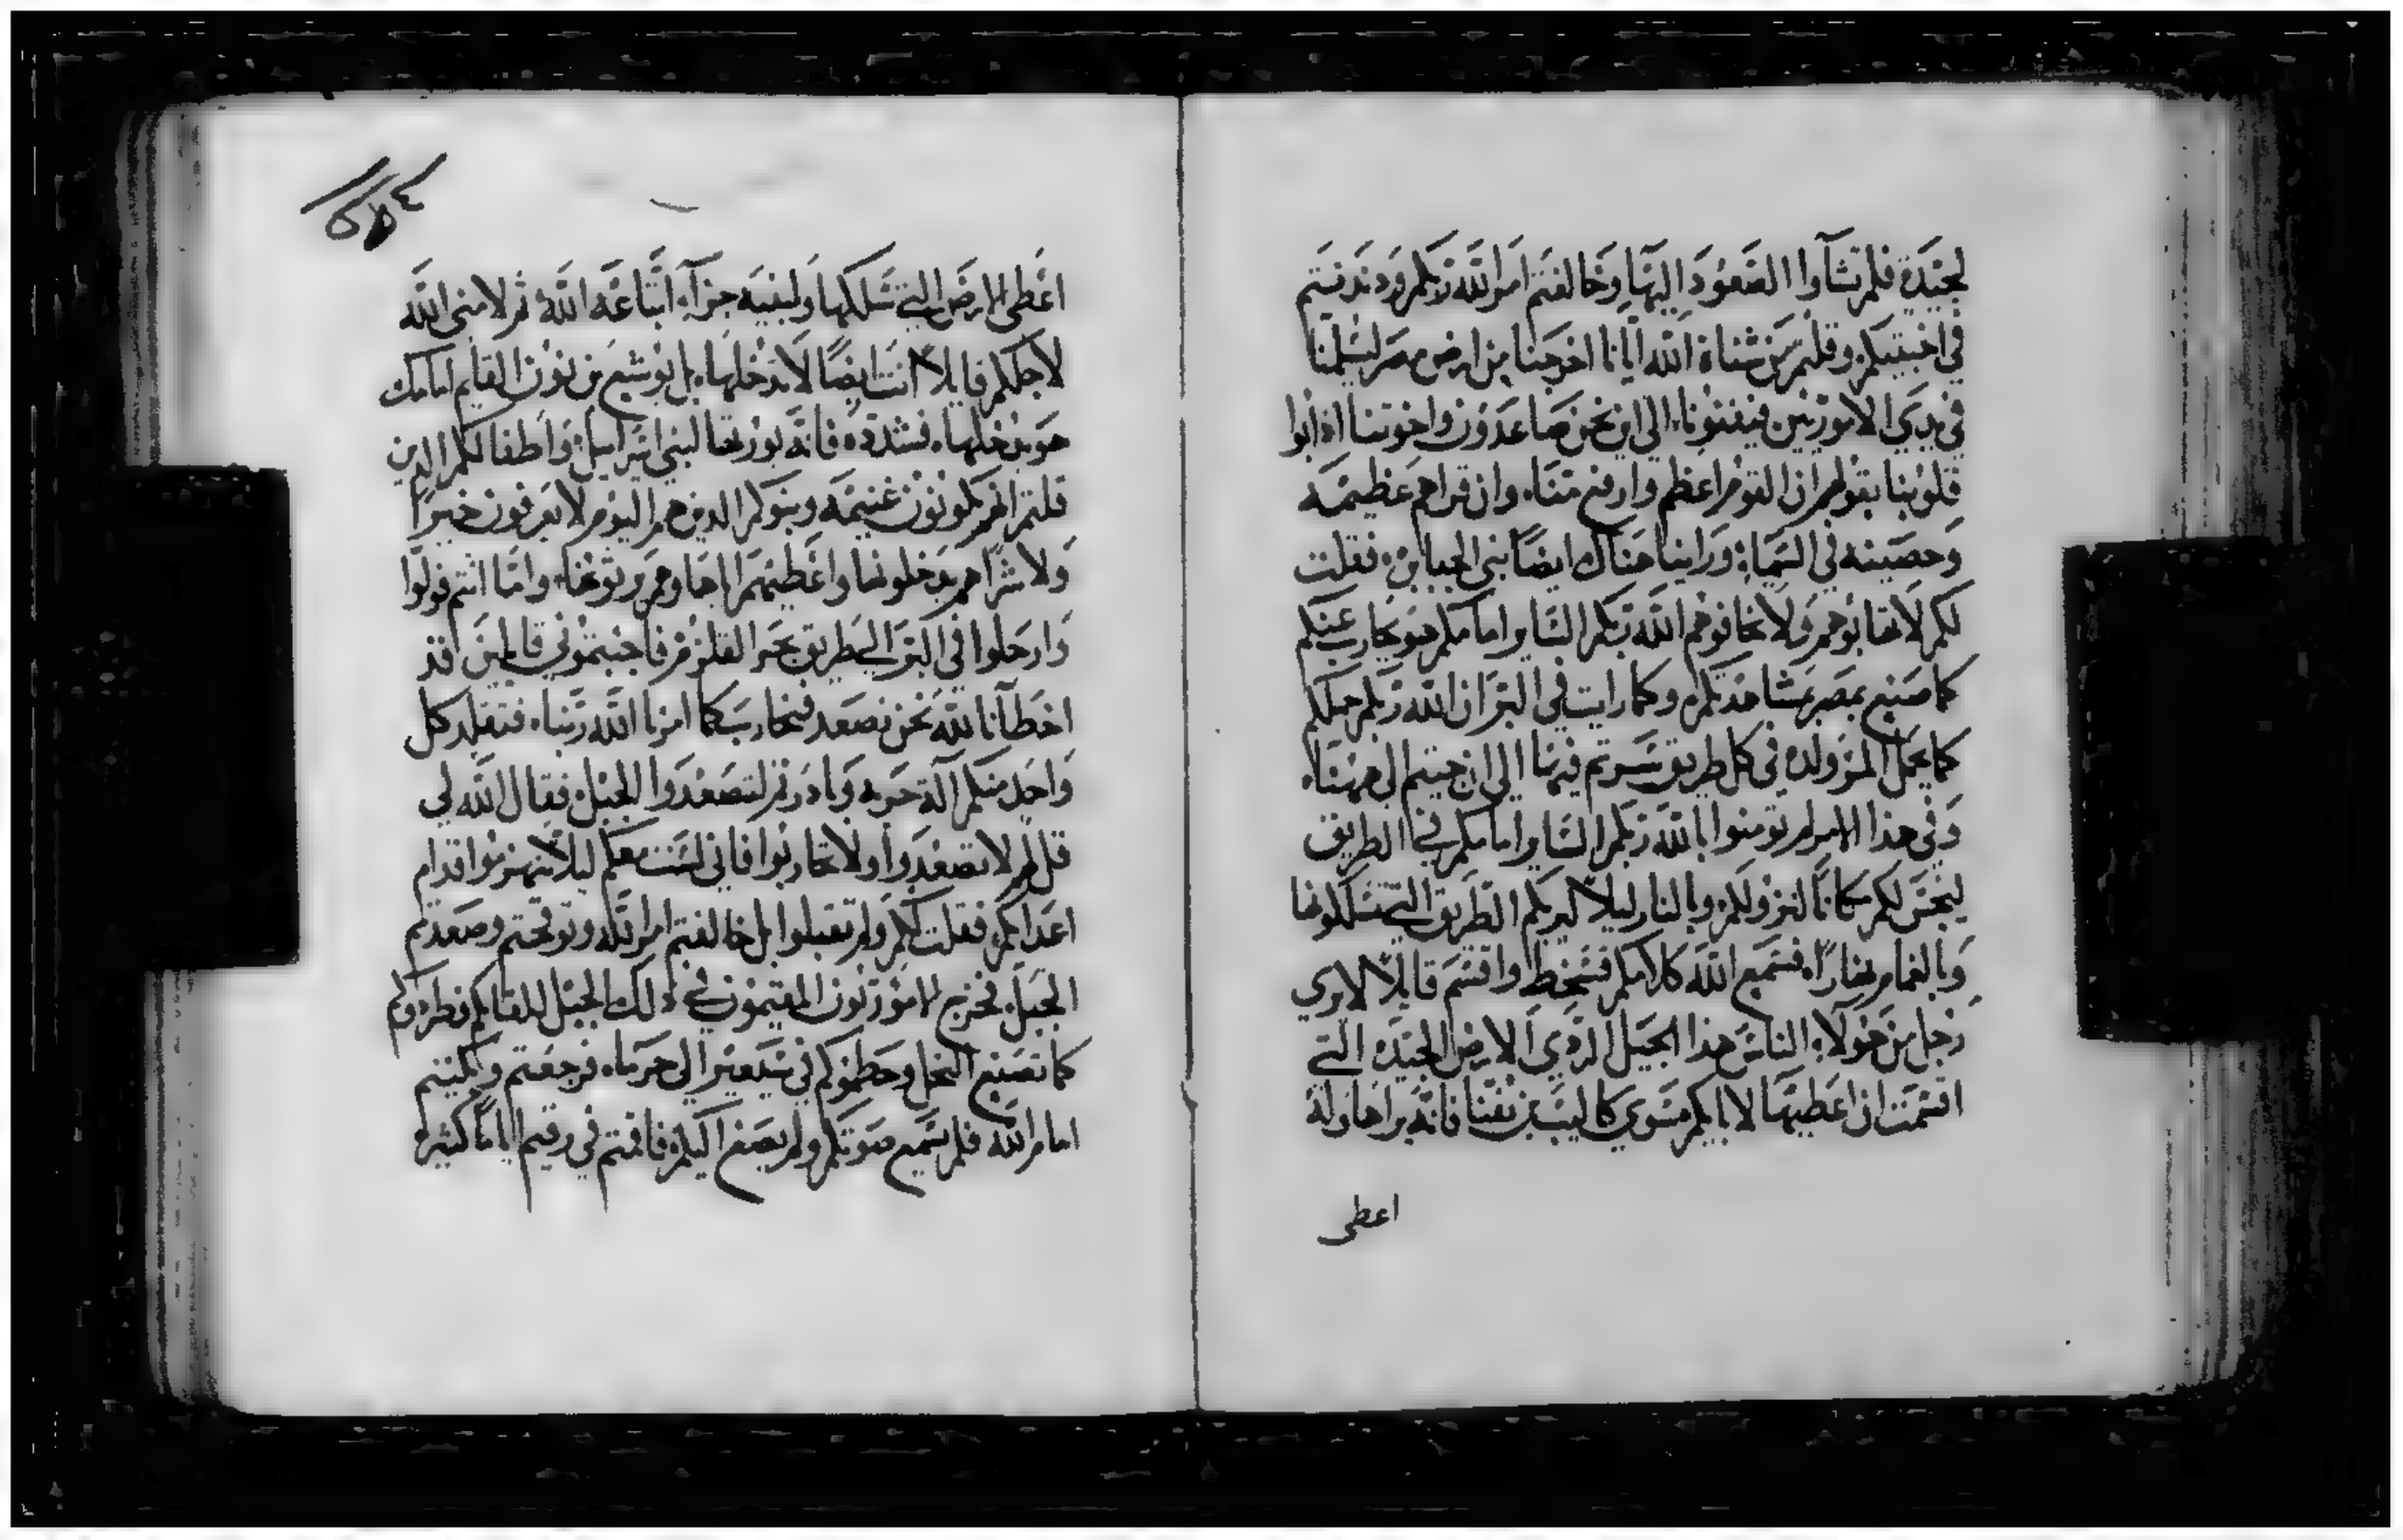 لجيدة فلم تشآوا الصعود اليها وخالفتم امر الله ربكم ودندنتم
في اخبيتكم وقلتم من شناة الله ايانا اخرجنا من ارض مصر ليسلمنا
في يدي الاموريين فيفنونا الي اين نحن صاعدون واخوتنا اذابوا
قلوبنا بقولهم ان القوم اعظم وارفع منا وان قراهم عظيمه
وحصينه في السما وراينا هناك ايضا بني الجبابرة فقلت
لكم لا تهابوهم ولا تخافوهم الله ربكم الساير امامكم هو يحارب عنكم
كما صنع بمصر بمشاهدتكم وكما رايت في البر ان الله ربكم حملكم
كما يحمل المر ولده في كل طريق سرتم فيها الي ان جيتم الي ههنا
وفي هذا الامر لم تومنوا بالله ربكم الساير امامكم في الطريق
ليجس لكم مكانا لنزولكم وبالنار ليلا ليريكم الطريق التي تسلكونها
وبالغمام نهارا فسمع الله كلامكم فسخط واقسم قايلا لا يري
رجل من هولاء الناس هذا الجيل الردي الارض الجيدة التي
اقسمت ان اعطيها لابايكم سوي كاليب بن يفنا فانه يراها وله
اعطي
اعطي الارض التي سلكها ولبنيه جزآء اتباعه الله ثم لامني الله
لاجلكم قايلا انت ايضا لا تدخلها بل يوشع بن نون القايم امامك
هو يدخلها فشدده فانه يورثها لبني اسراييل واطفالكم الدين
قلتم انهم يكونون غنيمه وبنوكم الدين هم اليوم لا يعرفون خيرا
ولا شرا هم يدخلونها واعطيهم اياها وهم يرثونها واما انتم فولوا
وارحلوا في البر الي طريق بحر القلزم فاجبتموني قايلين قد
اخطآنا لله نحن نصعد فنحارب كما امرنا الله ربنا فتقلد كل
واحد منكم آلة حربه وبادرتم لتصعدوا الجبل فقال الله لي
قل لهم لا تصعدوا ولا تحاربوا فاني لست معكم ليلا تنهزموا قدام
اعدايكم فقلت لكم ولم تقبلوا بل خالفتم امر الله وتوقحتم وصعدتم
الجبل فخرج الاموريون المقيمون في دلك الجبل للقايكم فطردوكم
كما تصنع النحل وحطموكم في سيعير الي حرما فرجعتم وبكيتم
امام الله فلم يسمع صوتكم ولم يصغ اليكم فاقمتم في رقيم اياما كثيرة